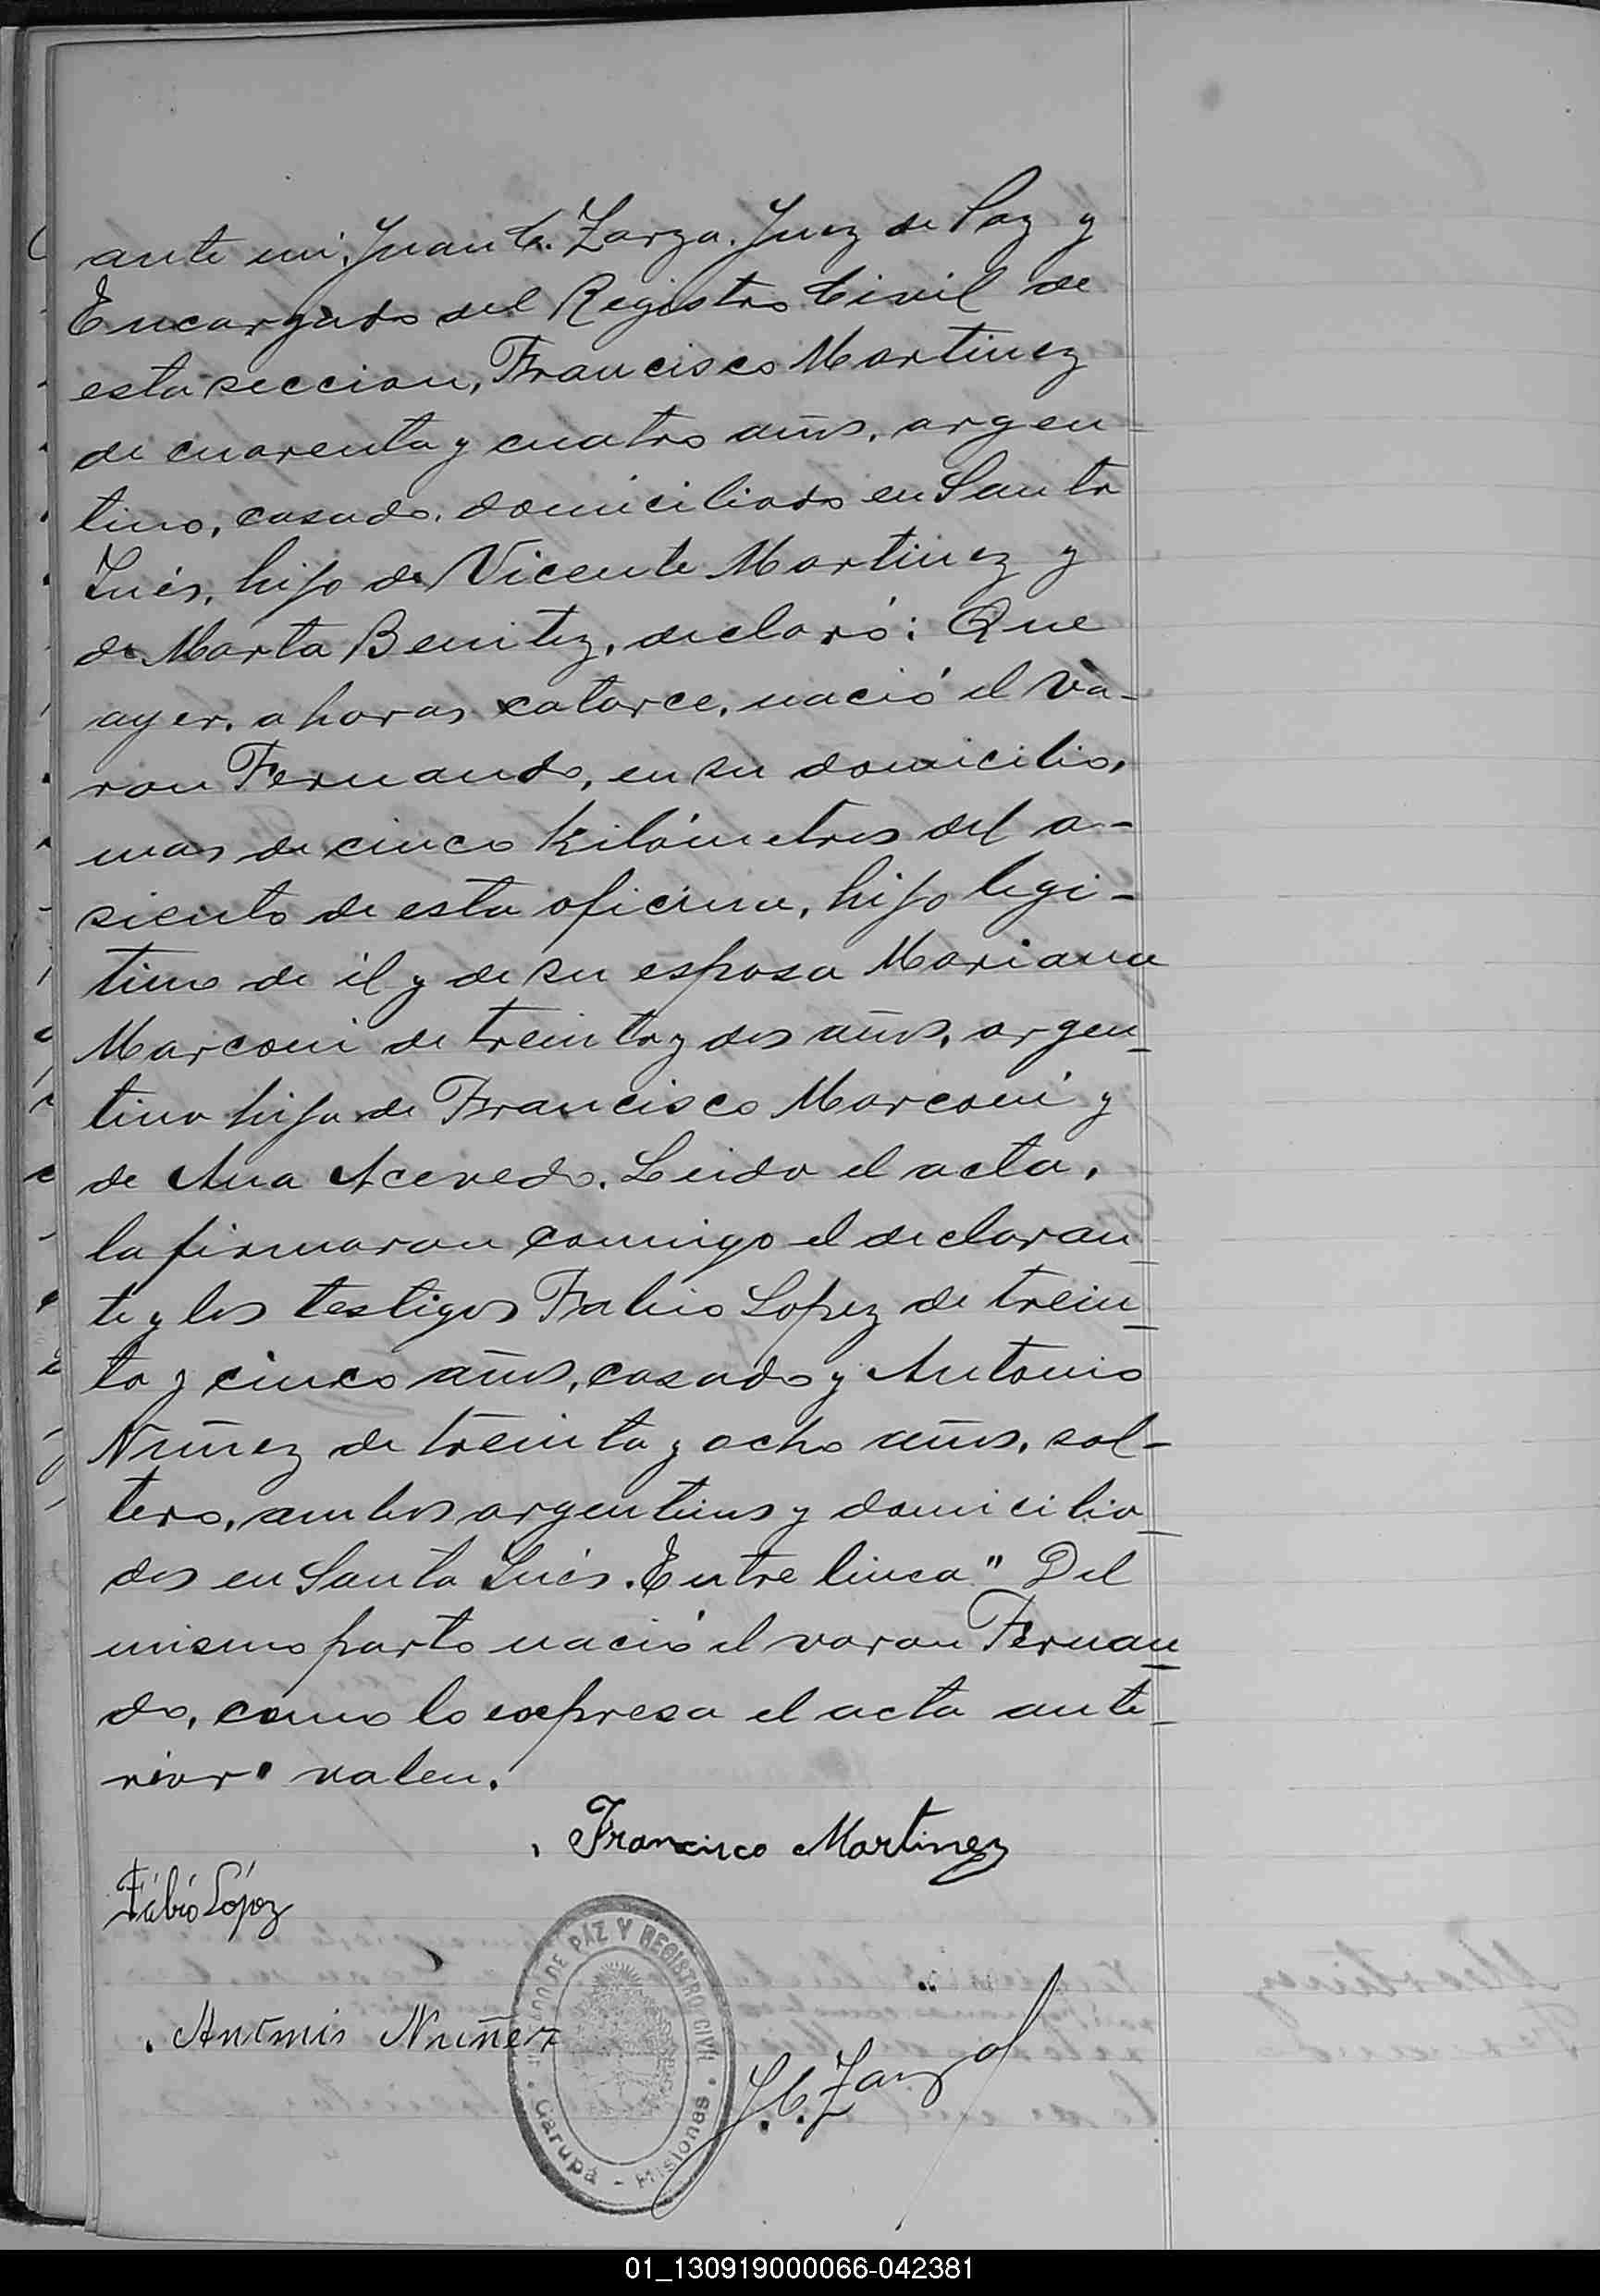 ante mi, Juan C. Zarza. Juez de Paz y
Encargado del Registro Civil de
esta seccion, Francisco Martinez
de cuarenta y cuatro años, argen-
tino, casado, domiciliado en Santa
Inés, hijo de Vicente Martinez y
de Marta Benitez, declaró: Que
ayer, a horas catorce, nació el va-
ron Fernando, en su domicilio,
mas de cinco kilómetros del a-
siento de esta oficina, hijo legi-
timo de él y de su esposa Mariana
Marconi de treinta y dos años, argen-
tina hija de Francisco Marconi y
de Ana Acevedo. Leida el acta,
la firmaron conmigo el declaran-
te y los testigos Fabio Lopez de trein-
ta y cinco años, casado y Antonio
Nuñez de treinta y ocho años, sol-
tero, ambos argentinos y domicilia-
dos en Santa Inés. Entre linea "Del
mismo parto nació el varon Fernan-
do, como lo expresa el acta ante-
rior" valen.
Francisco Martinez
Fábió López
Antonio Nuñez
JUZGADO DE PAZ Y REGISTRO CIVIL
Garupá - Misiones
J.C. Zarza
01_130919000066-042381